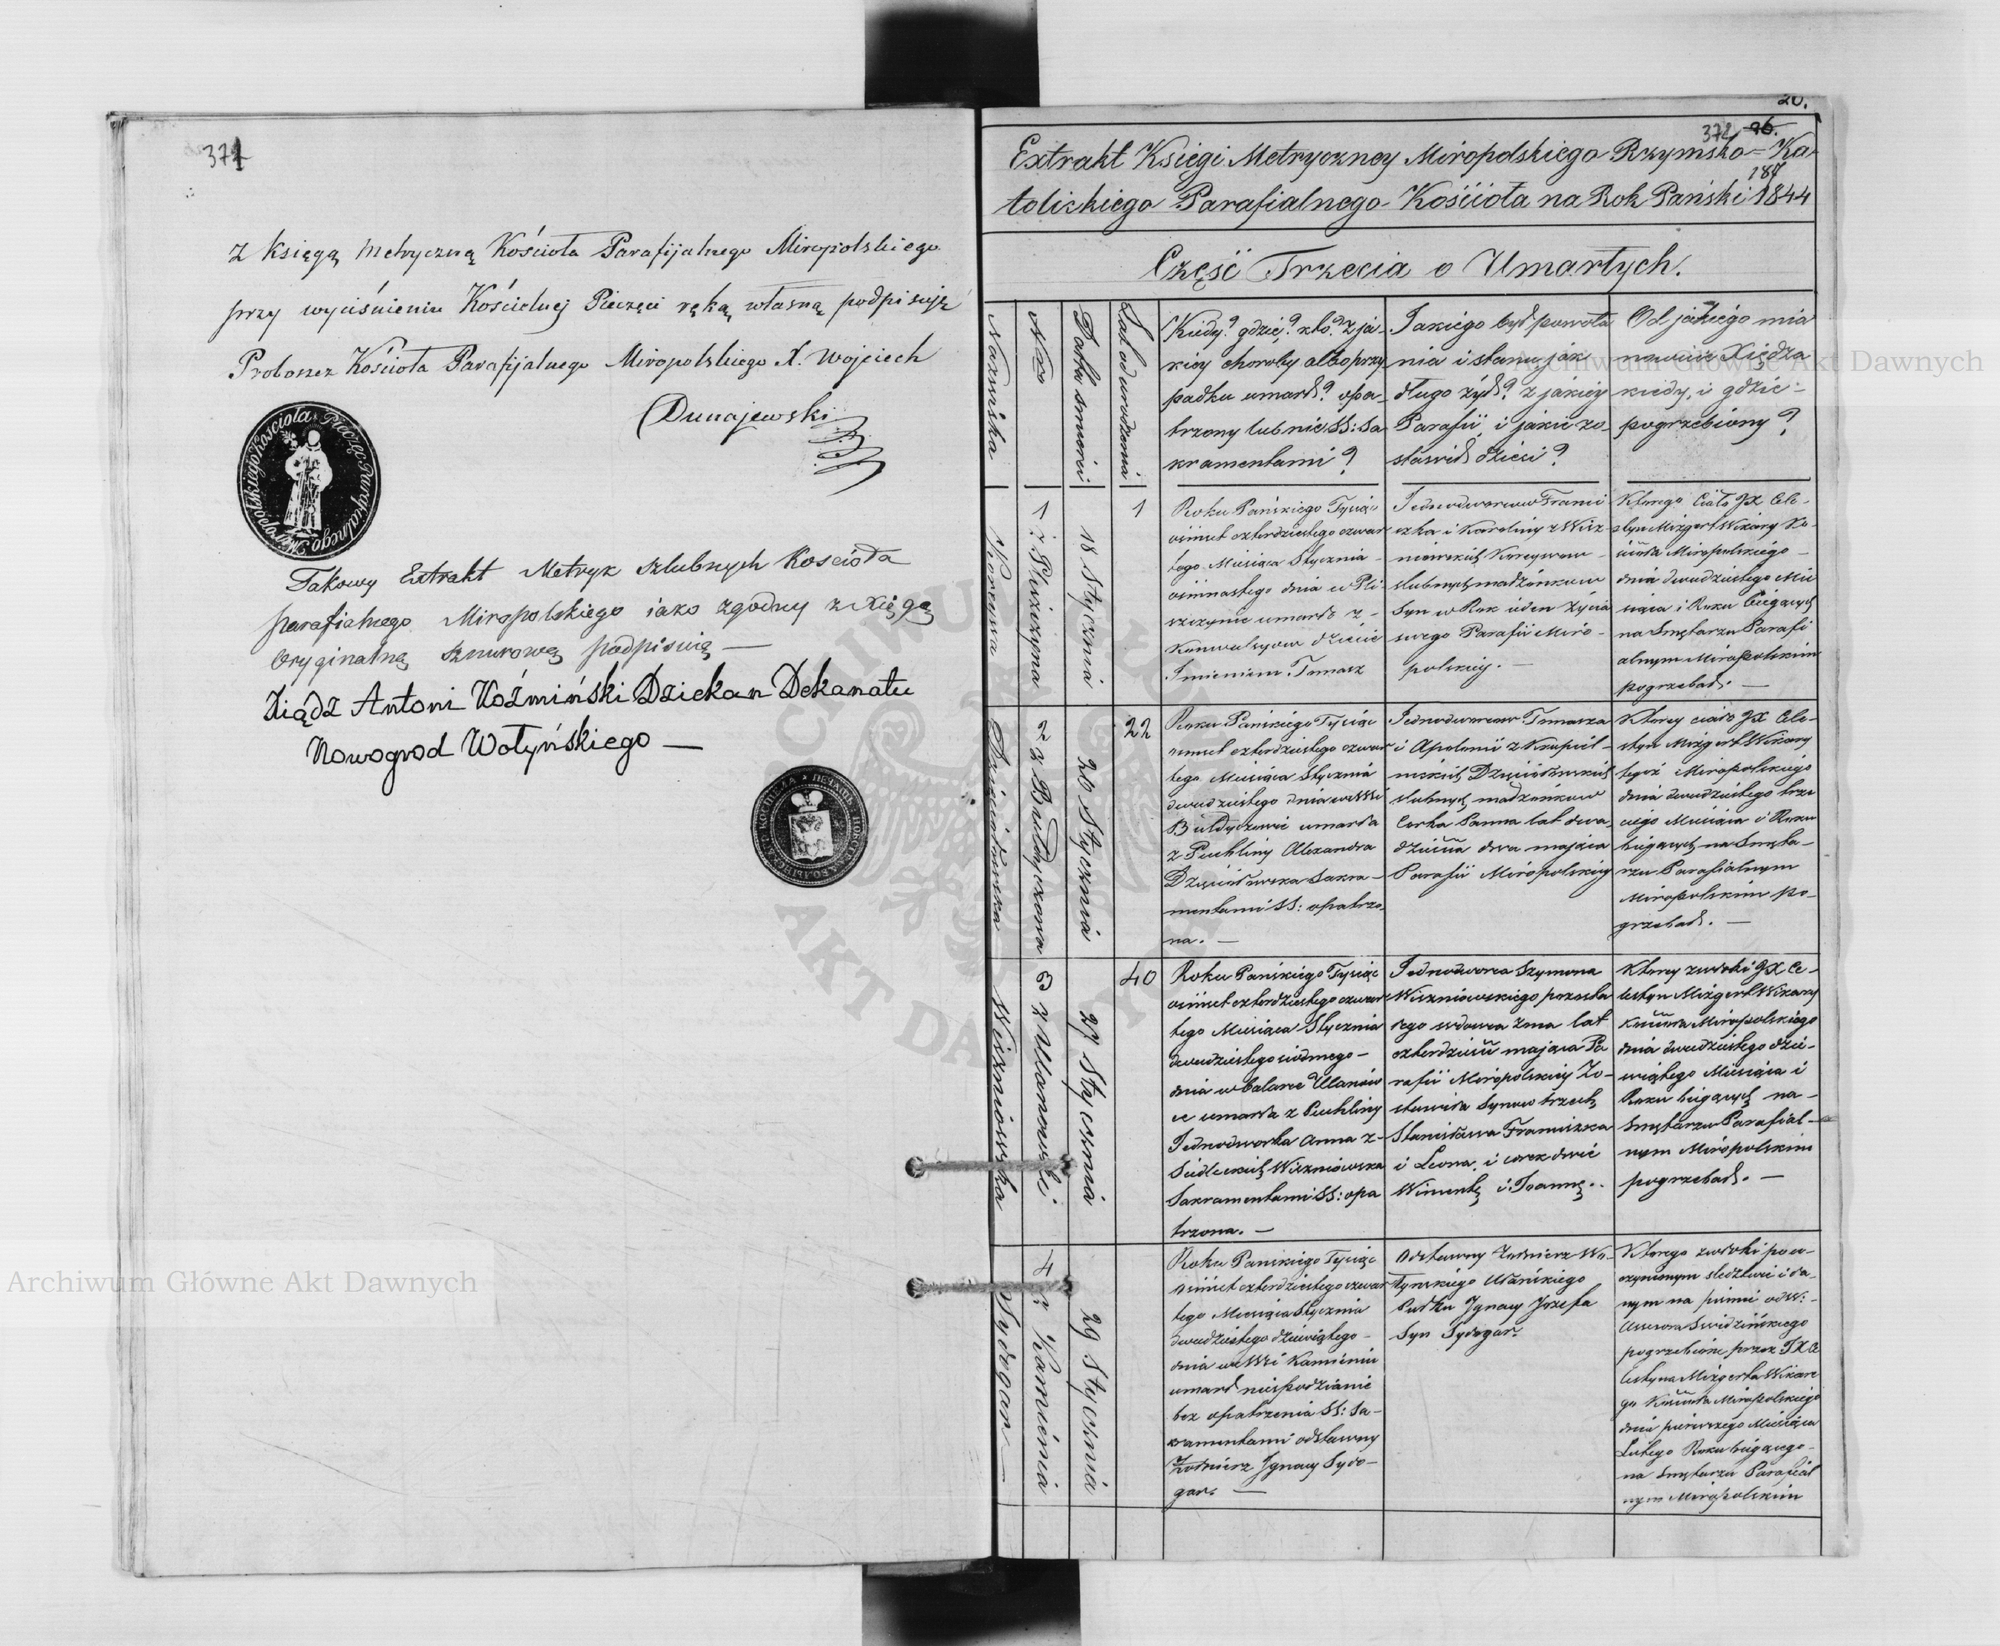 371
Z Księgą Metryczną Kościoła Parafijalnego Miropolskiego
przy wyciśnieniu Kościelnej Pieczęci ręką własną podpisuję
Proboszcz Kościoła Parafijalnego Miropolskiego X. Wojciech
Dunajewski
Pieczęć Parafialnego Miropolskiego Kościoła
Takowy Extrakt Metryk szlubnych Kościoła
parafialnego Miropolskiego iako zgodny z Xięgą
Oryginalną sznurową podpisuię —
Xiądz Antoni Koźmiński Dziekan Dekanatu
Nowogrod Wołyńskiego —
20.
372 26.
Extrakt Księgi Metryczney Miropolskiego Rzymsko=Ka-
187
tolickiego Parafialnego Kościoła na Rok Pański 1844
Część Trzecia o Umarłych.
Nazwiska
Nro
Datta smierci
Lat od urodzenia
Kiedy? gdzie? kto? z ja
kiey choroby albo przy
padku umarł? opa-
trzony lub nie SS: Sa-
kramentami?
Jakiego był powoła
nia i stanu, jak
długo żył? z jakiey
Parafii, i jakie zo-
stawił dzieci?
Od jakiego mia
nowicie Xiędza
kiedy, i gdzie
pogrzebiony?
1 z Pliszczyna
18 Stycznia
1
Roku Pańskiego Tysiąc
ośmset czterdziestego czwar
tego Miesiąca Stycznia
ośmnastego dnia w Pli
szczynie umarło z
Konwulsyow dziecie
Imieniem Tomasz
Jednodworcow Franci
szka i Karoliny z Wisz-
niewskich
slubnych małżonkow
Syn w Rok ieden życia
swego Parafii Miro-
polskiey. —
Ktorego Ciało JX Cele-
styn Mizgert Wikary Ko-
ścioła Miropolskiego
dnia dwudziestego Mie
siąca i Roku bieżących
na Smętarzu Parafi
alnym Miropolskim
pogrzebał. —
2 z Bułdyczowa
20 Stycznia
22
Roku Pańskiego Tysiąc
ośmset czterdziestego czwar
tego Miesiąca Stycznia
dwudziestego dnia we Wsi
Bułdyczowie umarła
z Puchliny Alexandra
Dzięciołowska Sakra-
mentami SS: opatrzo
na. —
Jednodworcow Tomasza
i Apolonii z
Dzięciołowskich
slubnych małżonkow
Corka Panna lat dwa
dzieścia dwa maiąca
Parafii Miropolskiey
Ktorey ciało JX Cele-
styn Mizgert Wikary
tegoż Miropolskiego
dnia dwudziestego trze
ciego Miesiąca i Roku
bieżących na Smęta-
rzu Parafialnym
Miropolskim po-
grzebał. —
Dzięciołowska
3 z Ulanowki
27 Stycznia
40
Roku Pańskiego Tysiąc
ośmset czterdziestego czwar
tego Miesiąca Stycznia
dwudziestego siodmego
dnia w
umarła z Puchliny
Jednodworka Anna z
Siedleckich Wiszniowska
Sakramentami SS: opa
trzona. —
Jednodworca Szymona
Wiszniowskiego pozosta
łego wdowca żona lat
czterdzieści maiąca Pa
rafii Miropolskiey Zo-
stawiła Synow trzech
Stanisława Franciszka
i Leona, i corek dwie
Wincentę i Joannę.
Ktorey zwłoki JX Ce-
lestyn Mizgert Wikary
Kościoła Miropolskiego
dnia dwudziestego dzie-
wiątego Miesiąca i
Roku bieżących na
Smętarzu Parafial-
nym Miropolskim
pogrzebał. —
Wiszniowska
4 z Kamienia
29 Stycznia
Roku Pańskiego Tysiąc
ośmset czterdziestego czwar
tego Miesiąca Stycznia
dwudziestego dziewiątego
dnia we Wsi Kamieniu
umarł niespodzianie
bez opatrzenia SS: Sa-
kramentami odstawny
Żołnierz Ignacy Sydo-
gar. —
Odstawny Żołnierz Wo-
łyńskiego Ułańskiego
Pułku Ignacy Jozefa
Syn Sydogar.
Ktorego zwłoki po u-
czynionym sledztwie i da-
nym na piśmie od W:
Assesora Swidzińskiego
pogrzebione przez JX Ce
lestyna Mizgerta Wikare
go Kościoła Miropolskiego
dnia pierwszego Miesiąca
Lutego Roku bieżącego
na Smętarzu Parafial
nym Miropolskim
Sydogar —
Archiwum Główne Akt Dawnych
Archiwum Główne Akt Dawnych